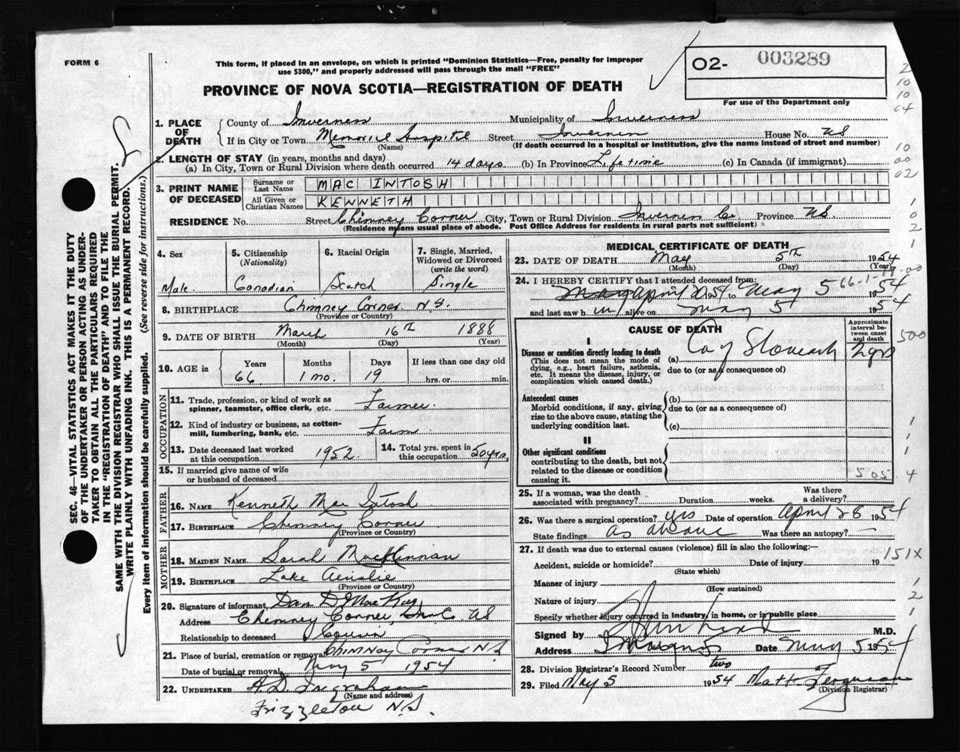 FORM 6
This form, if placed in an envelope, on which is printed "Dominion Statistics—Free, penalty for improper
use $300," and properly addressed will pass through the mail "FREE"
PROVINCE OF NOVA SCOTIA—REGISTRATION OF DEATH
02- 003289
For use of the Department only
1. PLACE OF DEATH
County of Inverness Municipality of Inverness
If in City or Town Memorial Hospital Street Inverness House No. NS
(Name) (If death occurred in a hospital or institution, give the name instead of street and number)
2. LENGTH OF STAY (in years, months and days)
(a) In City, Town or Rural Division where death occurred 14 days (b) In Province Lifetime (c) In Canada (if immigrant)
3. PRINT NAME OF DECEASED
Surname or Last Name MAC INTOSH
All Given or Christian Names KENNETH
RESIDENCE No. Street Chimney Corner City, Town or Rural Division Inverness Co. Province NS
(Residence means usual place of abode. Post Office Address for residents in rural parts not sufficient)
4. Sex
Male
5. Citizenship
(Nationality)
Canadian
6. Racial Origin
Scotch
7. Single, Married, Widowed or Divorced
(write the word)
Single
8. BIRTHPLACE Chimney Corner N.S.
(Province or Country)
9. DATE OF BIRTH March 16th 1888
(Month) (Day) (Year)
10. AGE in
Years Months Days If less than one day old
66 1 mo. 19 hrs. or min.
OCCUPATION
11. Trade, profession, or kind of work as
spinner, teamster, office clerk, etc. Farmer
12. Kind of industry or business, as cotton-
mill, lumbering, bank, etc. Farm
13. Date deceased last worked
at this occupation 1952
14. Total yrs. spent in
this occupation 50 yrs.
15. If married give name of wife
or husband of deceased
FATHER
16. NAME Kenneth Mac Intosh
17. BIRTHPLACE Chimney Corner
(Province or Country)
MOTHER
18. MAIDEN NAME. Sarah MacKinnon
19. BIRTHPLACE Lake Ainslie
(Province or Country)
20. Signature of informant Dan D MacKay
Address Chimney Corner Inv. Co. NS
Relationship to deceased Cousin
21. Place of burial, cremation or removal Chimney Corner N.S.
Date of burial or removal May 5 1954
22. UNDERTAKER A.D. Ingraham
(Name and address)
Frizzleton N.S.
MEDICAL CERTIFICATE OF DEATH
23. DATE OF DEATH May 5th 1954
(Month) (Day) (Year)
24. I HEREBY CERTIFY that I attended deceased from:
April 20 54 to May 5 1954
and last saw him alive on May 5 1954
66-1-19
CAUSE OF DEATH
Approximate interval between onset and death
I
Disease or condition directly leading to death
(This does not mean the mode of dying, e.g., heart failure, asthenia, etc. It means the disease, injury, or complication which caused death.)
(a) Ca of Stomach 2 yrs
due to (or as a consequence of)
Antecedent causes
Morbid conditions, if any, giving rise to the above cause, stating the underlying condition last.
(b)
due to (or as a consequence of)
(c)
II
Other significant conditions
contributing to the death, but not related to the disease or condition causing it.
505
25. If a woman, was the death
associated with pregnancy? Duration weeks. Was there a delivery?
26. Was there a surgical operation? yes Date of operation April 28 1954
State findings as above Was there an autopsy?
27. If death was due to external causes (violence) fill in also the following:—
151X
Accident, suicide or homicide? Date of injury 19
(State which)
Manner of injury
(How sustained)
Nature of injury
Specify whether injury occurred in industry, in home, or in public place
Signed by M.D.
Address Inverness Date May 5 1954
28. Division Registrar's Record Number two
29. Filed May 5 1954 Matt. Ferguson
(Division Registrar)
SEC. 46—VITAL STATISTICS ACT MAKES IT THE DUTY
OF THE UNDERTAKER OR PERSON ACTING AS UNDER-
TAKER TO OBTAIN ALL THE PARTICULARS REQUIRED
IN THE "REGISTRATION OF DEATH" AND TO FILE THE
SAME WITH THE DIVISION REGISTRAR WHO SHALL ISSUE THE BURIAL PERMIT.
WRITE PLAINLY WITH UNFADING INK. THIS IS A PERMANENT RECORD.
Every item of information should be carefully supplied. (See reverse side for instructions.)